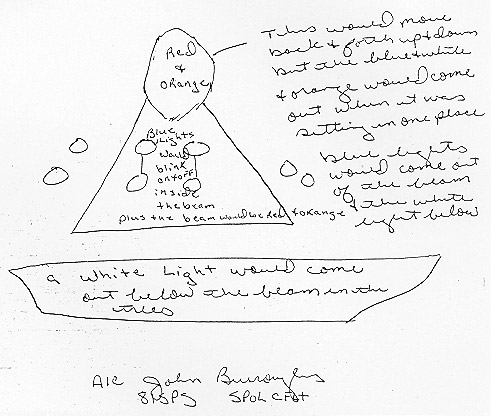 This would move
back & forth up & down
but the blue & white
& orange would come
out when it was
sitting in one place
Red
&
orange
Blue
Lights
would
blink
on & off
inside
the beam
plus the beam would be red & orange
blue lights
would come out
of the beam
& the white
light below
a white Light would come
out below the beam in the
trees
A1C John Burroughs
81 SPS